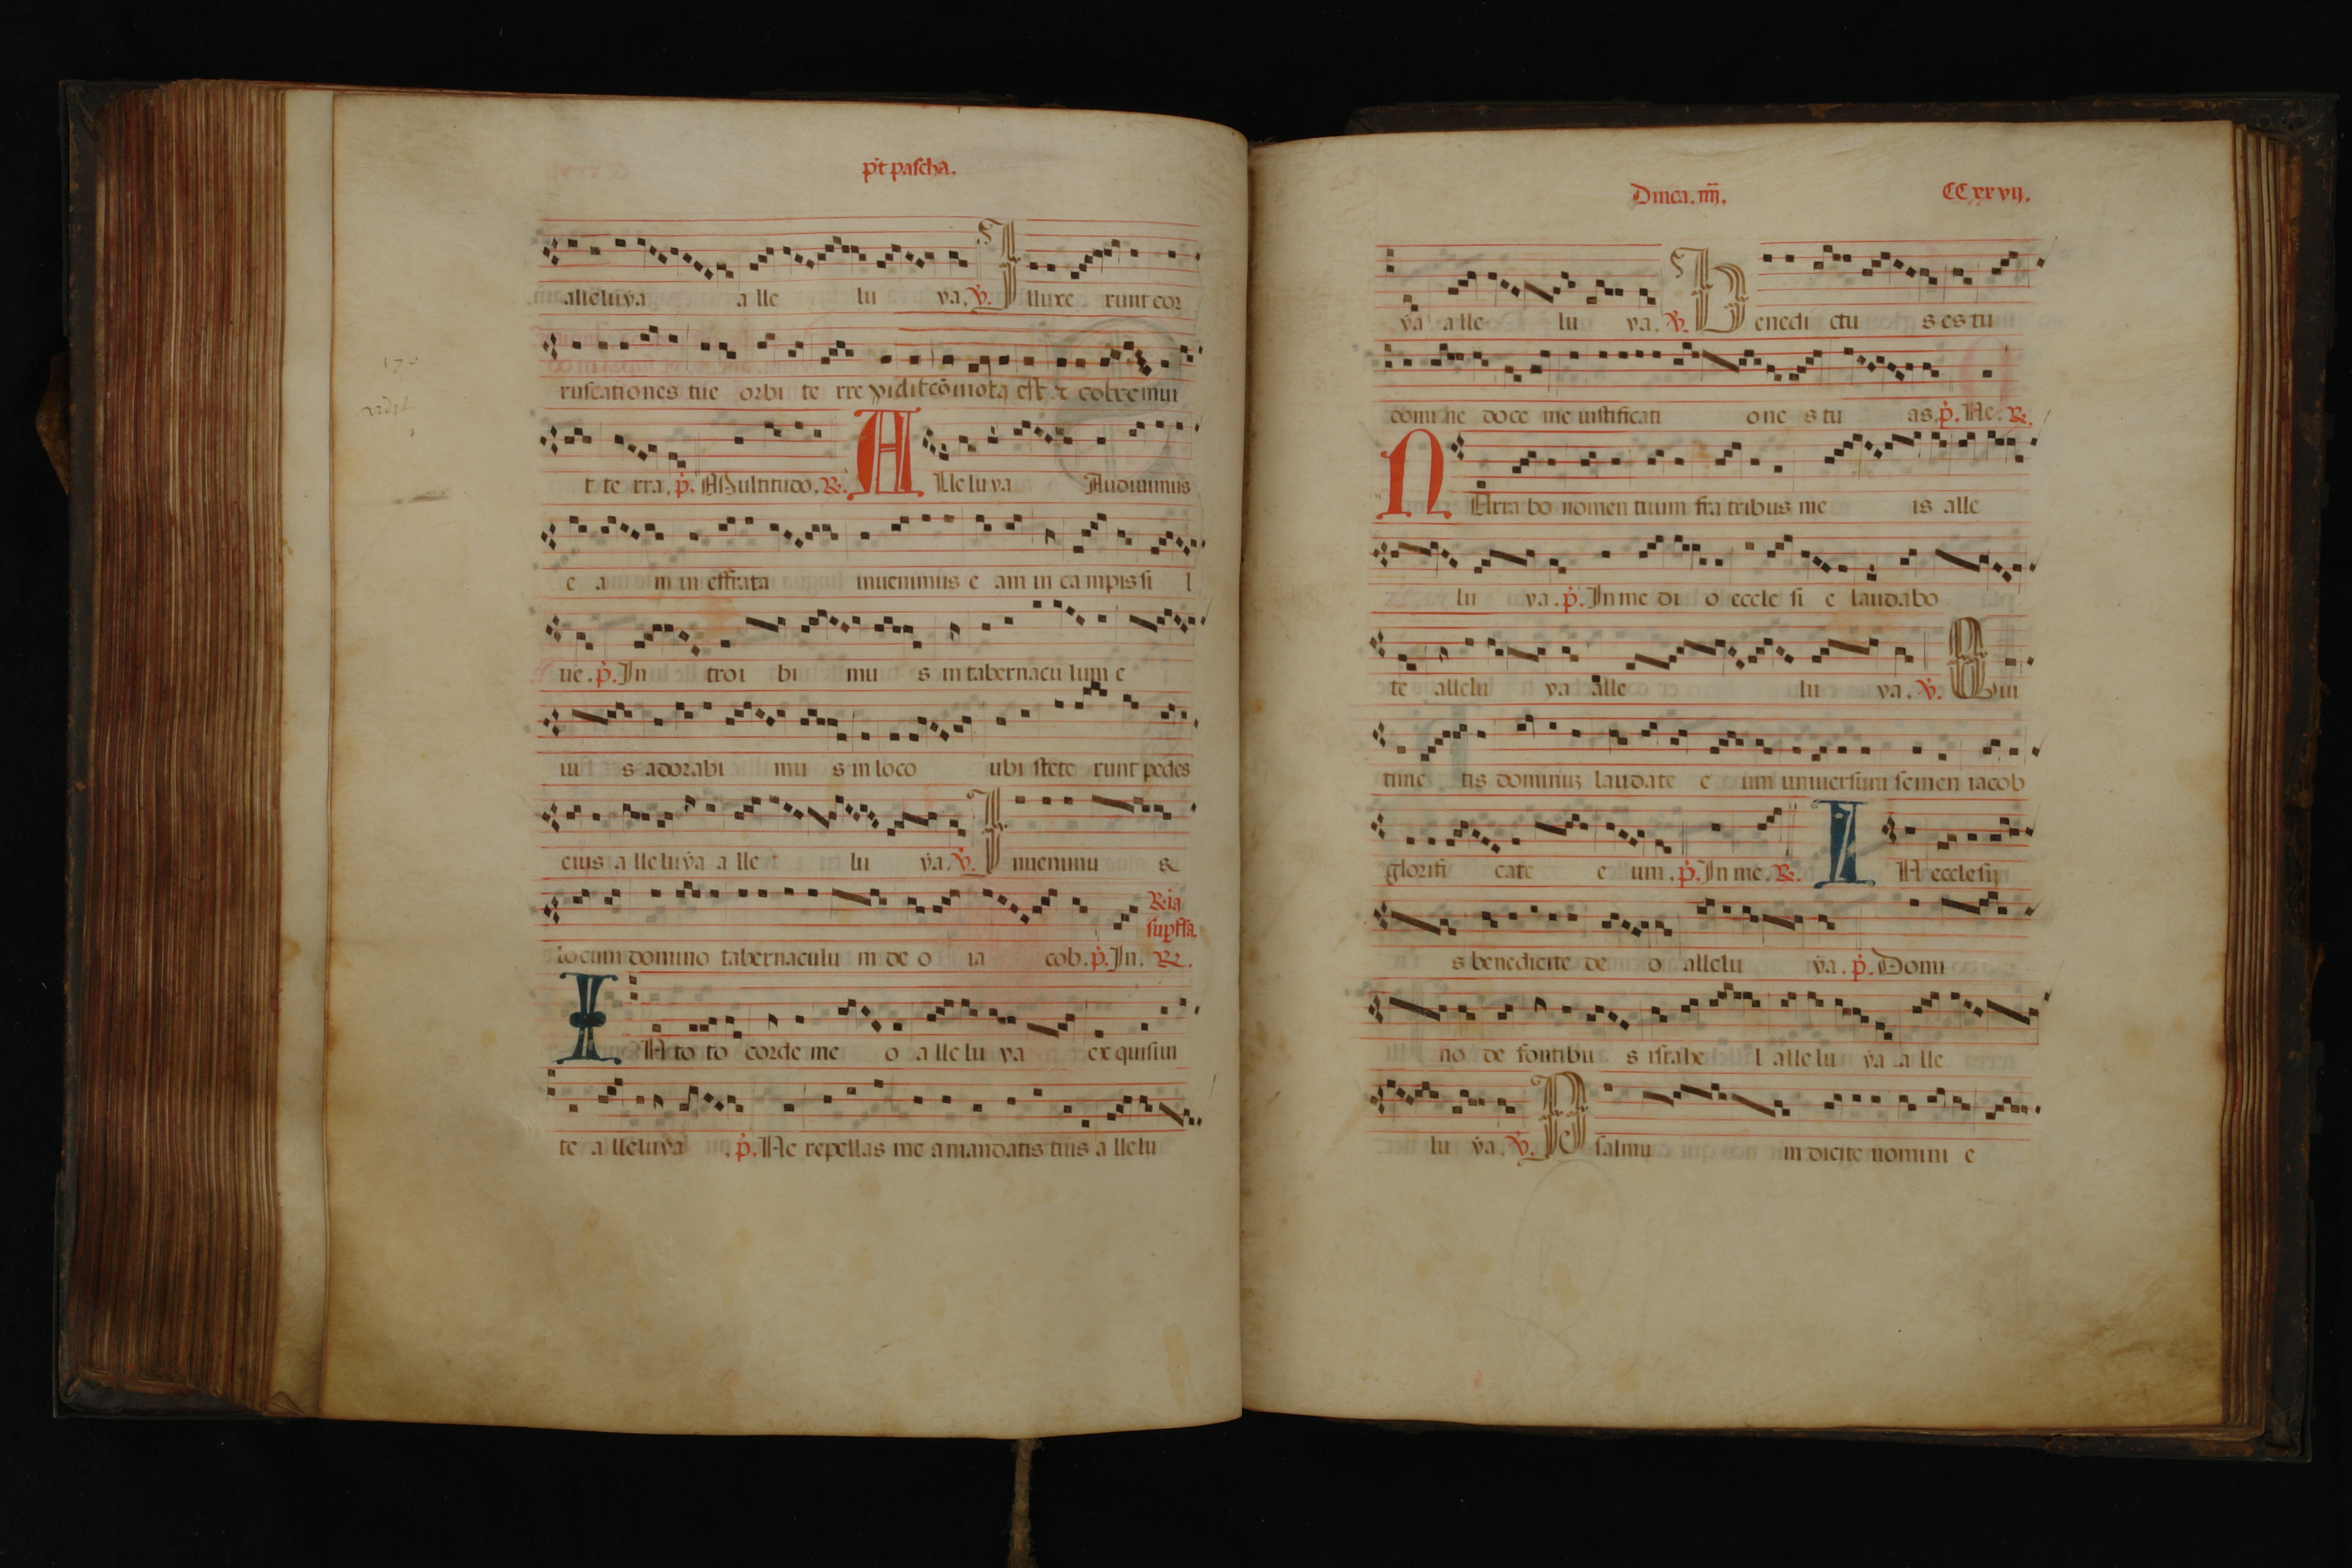 p̄t pascha.
alleluya a lle lu ya. ℣. Illuxe runt cor
ruscationes tue orbi te rre vidit ⁊ cōmota est ⁊ cōtremui
t te rra. p̄. Multitudo. ℟.
Alleluya Audiuimus
e a m in effrata inuenimus e am in campis si l
ue. p̄. In troi bi mu s in tabernacu lum e
iu s adorabi mu s in loco ubi stete runt pedes
eius a lleluya a lle lu ya ℣. Inuenimu s
locum domino tabernaculu m de o ia cob. p̄. In. ℟.
In to to corde me o a lle lu ya ex quisiui
te a lleluya . p̄. Ne repellas me a mandatis tuis a llelu
170
Dn̄ica. iiij.
CCxxvij.
ya a lle lu ya. ℣. Benedi ctu s es tu
domi ne doce me iustificati one s tu as. p̄. Ne. ℟.
Narra bo nomen tuum fra tribus me is alle
lu ya. p̄. In me di o eccle si e laudabo
te allelu ya alle lu ya. ℣. Qui
time tis dominuꝫ laudate e um uniuersum semen iacob
glorifi cate e um. p̄. In me. ℟. In ecclesij
s benedicite de o allelu ya. p̄. Domi
no de fontibu s israhe l alle lu ya a lle
lu ya. ℣. Psalmu m dicite nomini e